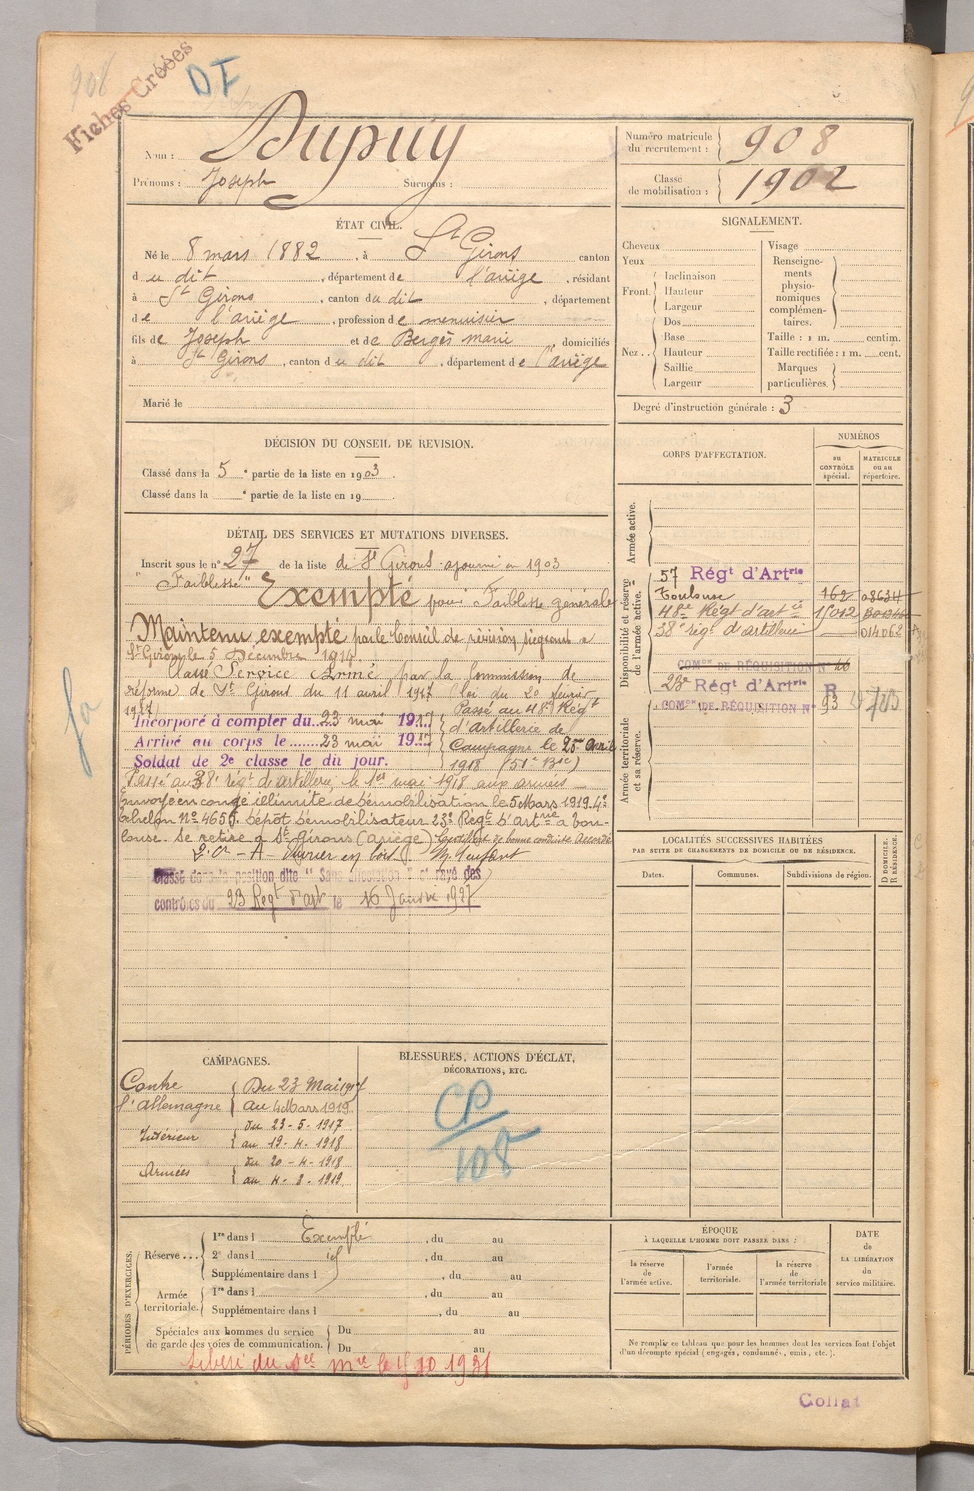 908
Fiches Créées
DF
Nom : Dupuy
Prénoms : Joseph Surnoms :
Numéro matricule du recrutement : 908
Classe de mobilisation : 1902
ÉTAT CIVIL.
Né le 8 mars 1882, à St Girons canton
du dit, département de l'ariège, résidant
à St Girons, canton du dit, département
de l'ariège, profession de menuisier
fils de Joseph et de Bergès marie domiciliés
à St Girons, canton du dit, département de l'ariège
Marié le
SIGNALEMENT.
Cheveux
Yeux
Front. Inclinaison
Hauteur
Largeur
Nez Dos
Base
Hauteur
Saillie
Largeur
Visage
Renseigne-
ments
physio-
nomiques
complémen-
taires.
Taille : 1 m. centim.
Taille rectifiée : 1 m. cent.
Marques
particulières.
Degré d'instruction générale : 3
DÉCISION DU CONSEIL DE REVISION.
Classé dans la 5e partie de la liste en 1903.
Classé dans la e partie de la liste en 19 .
DÉTAIL DES SERVICES ET MUTATIONS DIVERSES.
Inscrit sous le no 27 de la liste de St Girons ajourné en 1903
"Faiblesse" Exempté pour Faiblesse générale
Maintenu exempté par le Conseil de révision siégeant à
St Girons le 5 Décembre 1914
Classé Service Armé, par la Commission de
réforme de St Girons du 11 avril 1917 (loi du 20 février
1917)
Incorporé à compter du 23 mai 1917
Arrivé au corps le 23 mai 1917
Soldat de 2e classe le dit jour.
Passé au 48e Régt
d'artillerie de
Campagne le 20 avril
1918 (51e Bie)
Passé au 38e régt de artillerie, le 1er mai 1918 aux armées
Envoyé en congé illimité de démobilisation le 5 Mars 1919 4e
échelon No 4656. dépôt démobilisateur 23e Regt d'artrie à Tou-
louse. Se retire à St Girons (ariège) Certificat de bonne conduite Accordé
Classé dans la position dite "Sans affectation" et rayé des
contrôles du 23 Regt d'art le 16 Janvier 1927
CORPS D'AFFECTATION.
NUMÉROS
au CONTRÔLE spécial.
MATRICULE ou au répertoire.
Armée active.
Disponibilité et réserve de l'armée active.
57 Régt d'Artrie
Toulouse 162 08634
48e Régt d'artie 15012
38e régt d'artillerie 014062
COMon DE RÉQUISITION No
23e Régt d'Artrie R
COMon DE RÉQUISITION No 93
Armée territoriale et sa réserve.
LOCALITÉS SUCCESSIVES HABITÉES
PAR SUITE DE CHANGEMENTS DE DOMICILE OU DE RÉSIDENCE.
Dates. Communes. Subdivisions de région.
D DOMICILE.
R RÉSIDENCE.
CAMPAGNES.
Contre l'allemagne
Du 23 Mai 1917
au 4 Mars 1919
Intérieur
du 23-5-1917
au 19-4-1918
Armées
du 20-4-1918
au 4-3-1919
BLESSURES, ACTIONS D'ÉCLAT,
DÉCORATIONS, ETC.
CP
108
PÉRIODES D'EXERCICES.
Réserve ... 1re dans l Exempté, du au
2e dans l , du au
Supplémentaire dans l , du au
Armée territoriale. 1re dans l , du au
Supplémentaire dans l , du au
Spéciales aux hommes du service
de garde des voies de communication.
Du au
Du au
Libéré du Sce
ÉPOQUE
À LAQUELLE L'HOMME DOIT PASSER DANS :
la réserve de l'armée active.
l'armée territoriale.
la réserve de l'armée territoriale
DATE
de
LA LIBÉRATION
du
service militaire.
Ne remplir ce tableau que pour les hommes dont les services font l'objet
d'un décompte spécial (engagés, condamnés, omis, etc.).
Collat